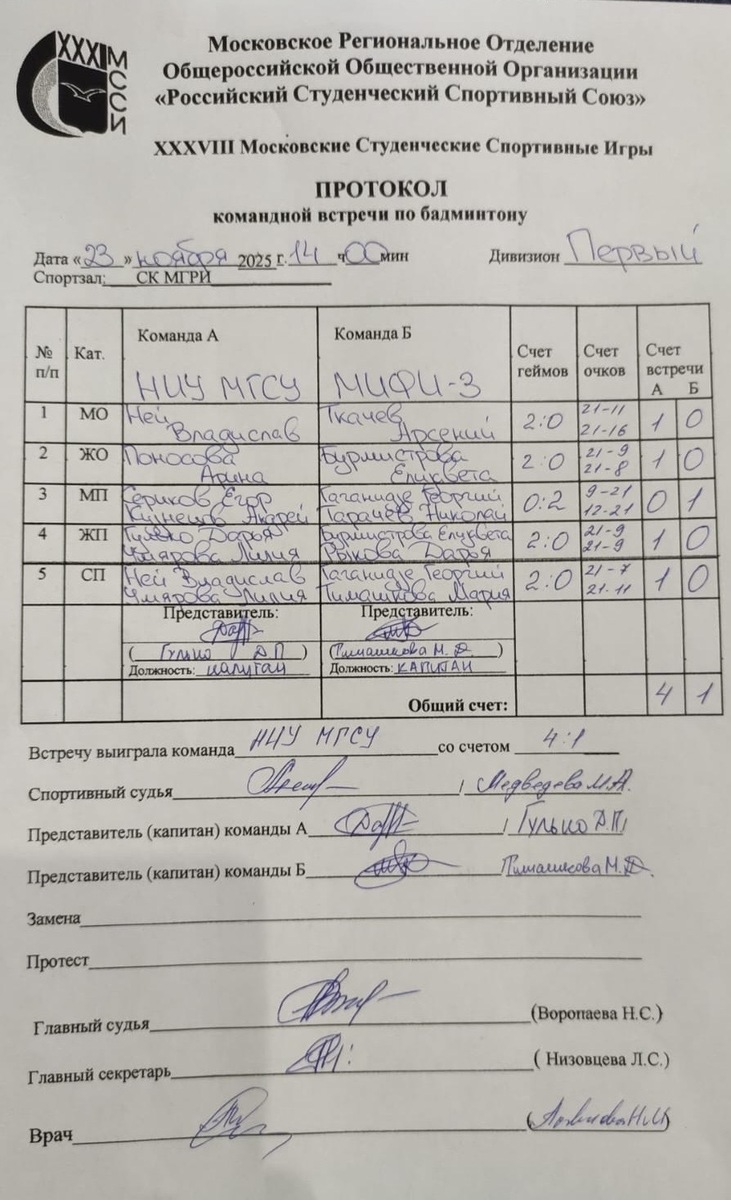 XXXI
МССИ
Московское Региональное Отделение
Общероссийской Общественной Организации
«Российский Студенческий Спортивный Союз»
XXXVIII Московские Студенческие Спортивные Игры
ПРОТОКОЛ
командной встречи по бадминтону
Дата «23» ноября 2025 г. 14 ч 00 мин Дивизион Первый
Спортзал: СК МГРИ
№ п/п Кат. Команда А НИУ МГСУ Команда Б МИФИ-3 Счет геймов Счет очков Счет встречи А Б
1 МО Ней Владислав Ткачев Арсений 2:0 21-11 21-16 1 0
2 ЖО Поносова Арина Бурмистрова Елизавета 2:0 21-9 21-8 1 0
3 МП Сериков Егор Кузнецов Андрей Гаганидзе Георгий Тарачёв Николай 0:2 9-21 12-21 0 1
4 ЖП Гулько Дарья Умярова Лилия Бурмистрова Елизавета Рыкова Дарья 2:0 21-9 21-9 1 0
5 СП Ней Владислав Умярова Лилия Гаганидзе Георгий Тимашкова Мария 2:0 21-7 21-11 1 0
Представитель: Представитель:
( Гулько Д П ) (Тимашкова М. Д. )
Должность: капитан Должность: КАПИТАН
Общий счет: 4 1
Встречу выиграла команда НИУ МГСУ со счетом 4:1
Спортивный судья / Медведева М.А.
Представитель (капитан) команды А / Гулько Д.П/
Представитель (капитан) команды Б Тимашкова М.Д.
Замена
Протест
Главный судья (Воропаева Н.С.)
Главный секретарь ( Низовцева Л.С.)
Врач